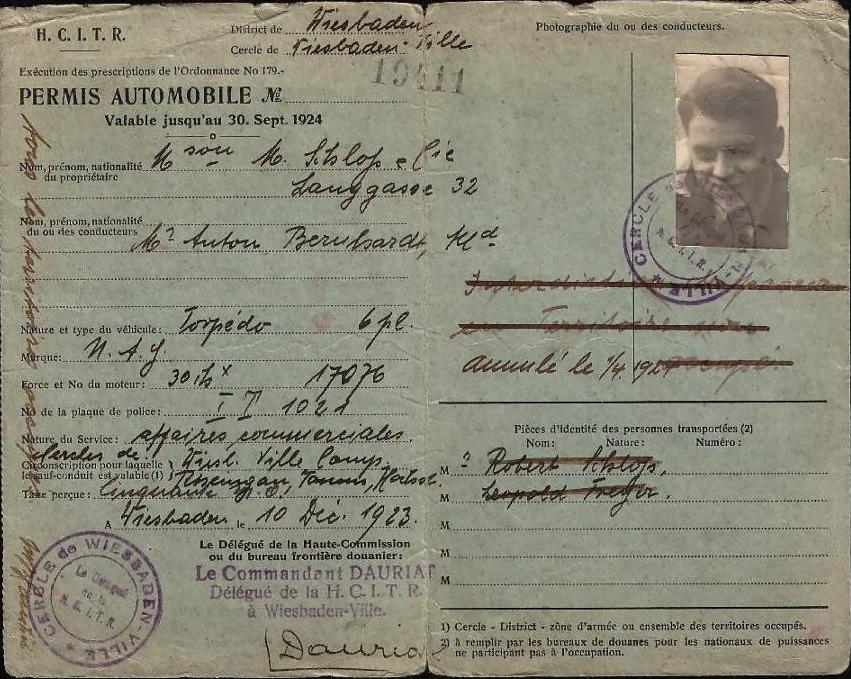 H. C. I. T. R.
District de Wiesbaden
Cercle de Wiesbaden-Ville
Exécution des prescriptions de l'Ordonnance No 179.-
19411
PERMIS AUTOMOBILE No.
Valable jusqu'au 30. Sept. 1924
Nom, prénom, nationalité du propriétaire
Mson M. Schloss & Cie
Langgasse 32
Nom, prénom, nationalité du ou des conducteurs
Mr Anton Bernhardt, Alld
Nature et type du véhicule: Torpédo 6 pl.
Marque: N. A. G.
Force et No du moteur: 17076
No de la plaque de police: I T 1021
Nature du Service: affaires commerciales.
Cercles de:
Circonscription pour laquelle le sauf-conduit est valable (1) Wiesb. Ville Camp.
Taxe perçue: Cinquante
A Wiesbaden le 10 Déc. 1923.
Le Délégué de la Haute-Commission
ou du bureau frontière douanier:
Le Commandant DAURIAT
Délégué de la H. C. I. T. R.
à Wiesbaden-Ville.
Dauriat
CERCLE de WIESBADEN-VILLE
Le Délégué
de la
H. C. I. T. R.
Photographie du ou des conducteurs.
CERCLE de WIESBADEN VILLE
H. C. I. T. R.
en Territoire
annulé le 1/4. 1924
Pièces d'identité des personnes transportées (2)
Nom: Nature: Numéro:
M r Robert Schloss,
M Leopold
M
M
M
1) Cercle - District - zône d'armée ou ensemble des territoires occupés.
2) à remplir par les bureaux de douanes pour les nationaux de puissances
ne participant pas à l'occupation.